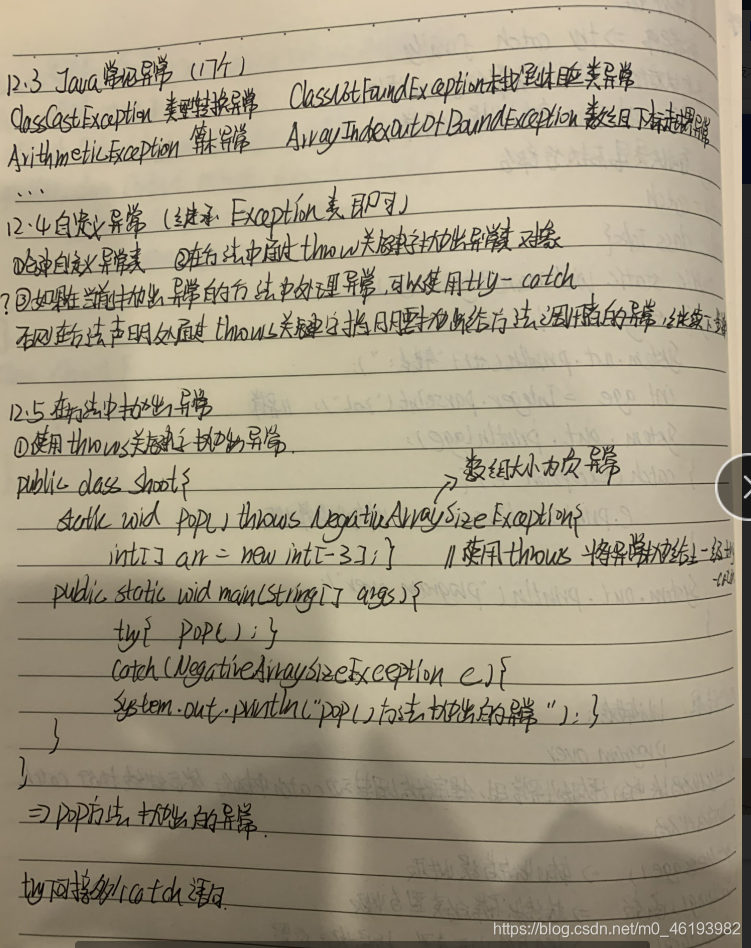 12.3 Java常见异常（17个）
ClassCastException 类型转换异常 ClassNotFoundException未找到相应类异常
ArithmeticException 算术异常 ArrayIndexOutOfBoundException 数组下标越界异常
...
12.4 自定义异常（继承 Exception类即可）
①创建自定义异常类 ②在方法中通过throw关键字抛出异常类对象
?③如果在当前抛出异常的方法中处理异常，可以使用try-catch
否则在方法声明处通过throws关键字指明要抛出给方法调用者的异常，继续下
12.5 在方法中抛出异常
①使用throws关键字抛出异常.
数组大小为负异常
public class shoot{
static void pop() throws NegativeArraySizeException{
int[] arr = new int[-3];} //使用throws 将异常抛给上一级
public static void main(String[] args){
try{ pop();}
catch(NegativeArraySizeException e){
System.out.println("pop()方法抛出的异常");}
}
}
⇒ pop方法抛出的异常.
try下可接多个catch语句.
https://blog.csdn.net/m0_46193982